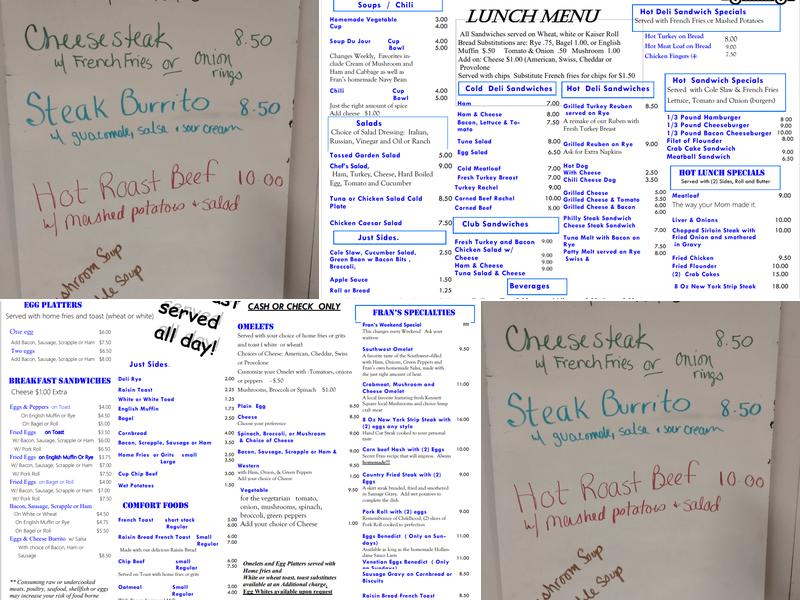 Cheesesteak 8.50
w/ French Fries or Onion rings
Steak Burrito 8.50
w/ guacomole, salsa & sour cream
Hot Roast Beef 10.00
w/ mashed potatoes & salad
Soup
Soup
Soups / Chili
Homemade Vegetable 3.00
Cup 4.00
Soup Du Jour Cup 4.00
Bowl 5.00
Changes Weekly, Favorites in-
clude Cream of Mushroom and
Ham and Cabbage as well as
Fran's homemade Navy Bean
Chili Cup 4.00
Bowl 5.00
Just the right amount of spice
Add cheese $1.00
Salads
Choice of Salad Dressing: Italian,
Russian, Vinegar and Oil or Ranch
Tossed Garden Salad 5.00
Chef's Salad, 9.00
Ham, Turkey, Cheese, Hard Boiled
Egg, Tomato and Cucumber
Tuna or Chicken Salad Cold 8.50
Plate
Chicken Caesar Salad 7.50
Just Sides.
Cole Slaw, Cucumber Salad, 2.50
Green Bean w Bacon Bits ,
Broccoli,
Apple Sauce 1.50
Roll or Bread 1.25
LUNCH MENU
All Sandwiches served on Wheat, white or Kaiser Roll
Bread Substitutions are: Rye .75, Bagel 1.00, or English
Muffin $.50 Tomato & Onion .50 Mushroom 1.00
Add on: Cheese $1.00 (American, Swiss, Cheddar or
Provolone
Served with chips Substitute French fries for chips for $1.50
Cold Deli Sandwiches
Ham 7.00
Ham & Cheese 8.00
Bacon, Lettuce & To- 7.50
mato
Tuna Salad 8.00
Egg Salad 6.50
Cold Meatloaf 7.00
Fresh Turkey Breast 7.00
Turkey Rachel 9.00
Corned Beef Rachel 10.00
Corned Beef 8.00
Club Sandwiches
Fresh Turkey and Bacon 9.00
Chicken Salad w/
Cheese 9.00
Ham & Cheese 9.00
Tuna Salad & Cheese
Beverages
Hot Deli Sandwiches
Grilled Turkey Reuben 8.50
served on Rye
A remake of our Ruben with
Fresh Turkey Breast
Grilled Reuben on Rye 9.00
Ask for Extra Napkins
Hot Dog
With Cheese 2.50
Chili Cheese Dog 3.50
Grilled Cheese 5.00
Grilled Cheese & Tomato
Grilled Cheese & Bacon 6.00
Philly Steak Sandwich
Cheese Steak Sandwich 7.00
Tuna Melt with Bacon on
Rye
Patty Melt served on Rye 8.00
Swiss &
Hot Deli Sandwich Specials
Served with French Fries or Mashed Potatoes
Hot Turkey on Bread 8.00
Hot Meat Loaf on Bread 9.00
Chicken Fingers (4) 7.50
Hot Sandwich Specials
Served with Cole Slaw & French Fries
Lettuce, Tomato and Onion (burgers)
1/3 Pound Hamburger 8 00
1/3 Pound Cheeseburger 9 00
1/3 Pound Bacon Cheeseburger 10.00
Filet of Flounder
Crab Cake Sandwich 9.00
Meatball Sandwich 6.50
HOT LUNCH SPECIALS
Served with (2) Sides, Roll and Butter
Meatloaf 9.00
The way your Mom made it.
Liver & Onions 10.00
Chopped Sirloin Steak with 10.00
Fried Onion and smothered
in Gravy
Fried Chicken 9.50
Fried Flounder 10.00
(2) Crab Cakes 15.00
8 Oz New York Strip Steak 18.00
EGG PLATTERS
Served with home fries and toast (wheat or white)
One egg $6.00
Add Bacon, Sausage, Scrapple or Ham $7.50
Two eggs $6.50
Add Bacon, Sausage, Scrapple or Ham $8.00
BREAKFAST SANDWICHES
Cheese $1.00 Extra
Eggs & Peppers on Toast $4.00
On English Muffin or Rye $4.50
On Bagel or Roll $5.00
Fried Eggs on Toast $3.00
W/ Bacon, Sausage, Scrapple or Ham $6.00
W/ Pork Roll $6.50
Fried Eggs on English Muffin Or Rye $3.75
W/ Bacon, Sausage, Scrapple or Ham
W/ Pork Roll
Fried Eggs on Bagel or Roll $4.00
W/ Bacon, Sausage, Scrapple or Ham $7.00
W/ Pork Roll $7.50
Bacon, Sausage, Scrapple or Ham
On White or Wheat $4.50
On English Muffin or Rye $4.75
On Bagel or Roll $5.50
Eggs & Cheese Burrito w/ Salsa
With choice of Bacon, Ham or
Sausage $8.50
** Consuming raw or undercooked
meats, poultry, seafood, shellfish or eggs
may increase your risk of food borne
served
all day!
Just Sides.
Deli Rye 2.00
Raisin Toast 2.25
White or White Toad 1.75
English Muffin
Bagel 2.50
Cornbread
Bacon, Scrapple, Sausage or Ham
Home Fries or Grits small 2.50
Large 3.50
Cup Chip Beef 3.00
Wet Potatoes 1.50
COMFORT FOODS
French Toast short stack 5.00
Regular 6.00
Raisin Bread French Toast Small
Regular 7.00
Made with our delicious Raisin Bread
Chip Beef small 6.00
Regular 7.50
Served on Toast with home fries or grits
Oatmeal Small 3.00
Regular 4.00
CASH OR CHECK ONLY
OMELETS
Served with your choice of home fries or grits
and toast ( white or wheat)
Choices of Cheese: American, Cheddar, Swiss
or Provolone
Customize your Omelet with :Tomatoes, onions
or peppers -$.50
Mushrooms, Broccoli or Spinach $1.00
Plain Egg
Cheese
Choose your preference
Spinach, Broccoli, or Mushroom
& Choice of Cheese
Bacon, Sausage, Scrapple or Ham &
Western
with Ham, Onion, & Green Peppers
Add your choice of Cheese
Vegetable
for the vegetarian tomato,
onion, mushrooms, spinach,
broccoli, green peppers
Add your choice of Cheese
Omelets and Egg Platters served with
Home fries and
White or wheat toast, toast substitutes
available at an Additional charge,
Egg Whites available upon request
FRAN'S SPECIALTIES
Fran's Weekend Special !!!!
This changes every Weekend Ask your
waitress
Southwest Omelet 9.50
A favorite taste of the Southwest-filled
with Ham, Onions, Green Peppers and
Fran's own homemade Salsa, made with
the just right amount of heat.
Crabmeat, Mushroom and 11.00
Cheese Omelet
A local favorite featuring fresh Kennett
Square local Mushrooms and choice lump
crab meat
8 Oz New York Strip Steak with 16.00
(2) eggs any style
Hand Cut Steak cooked to your personal
taste
Corn beef Hash with (2) Eggs 10.00
Secret Fran recipe that will impress. Always
homemade!!!
Country Fried Steak with (2) 9.00
Eggs
A skirt steak breaded, fried and smothered
in Sausage Gravy. Add wet potatoes to
complete the dish.
Pork Roll with (2) eggs 9.00
Remembrance of Childhood, (2) slices of
Pork Roll cooked to perfection
Eggs Benedict ( Only on Sun- 11.00
days)
Available as long as the homemade Hollan-
daise Sauce Lasts
Venetian Eggs Benedict ( Only 11.00
on Sundays)
Sausage Gravy on Cornbread or 8.50
Biscuits
Raisin Bread French Toast
Cheesesteak 8.50
w/ French Fries or Onion rings
Steak Burrito 8.50
w/ guacomole, salsa & sour cream
Hot Roast Beef 10.00
w/ mashed potatoes & salad
Soup
Soup